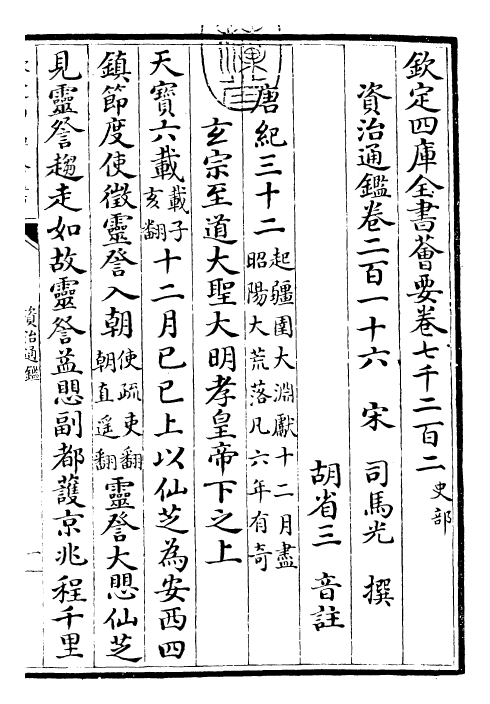 欽定四庫全書薈要卷七千二百二 史部
資治通鑑卷二百一十六 宋 司馬光 撰
胡省三 音註
唐紀三十二 起疆圉大淵獻十二月盡昭陽大荒落凡六年有奇
玄宗至道大聖大明孝皇帝下之上
天寶六載 載子亥翻 十二月己巳上以仙芝為安西四
鎮節度使徵靈詧入朝 使疏吏翻朝直遥翻 靈詧大愳仙芝
見靈詧趨走如故靈詧益愳副都護京兆程千里
資治通鑑